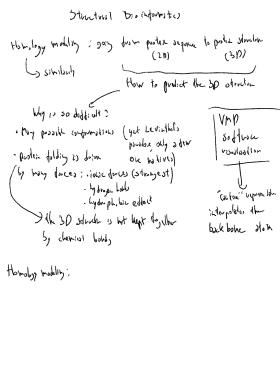 Structural Bioinformatics
Homology modeling : going from protein sequence to protein structure
(3D)
similarity
How to predict the 3D structure
Why is so difficult?
• Many possible conformations (yet Levinthal's
paradox, only a few
are natives)
• protein folding is driven
by many forces : • ionic forces (strongest)
• hydrogen bonds
• hydrophobic effect
the 3D structure is not kept together
by chemical bonds
VMD
software
visualization
"cartoon"
interpolates the
backbone atoms
Homology modeling :